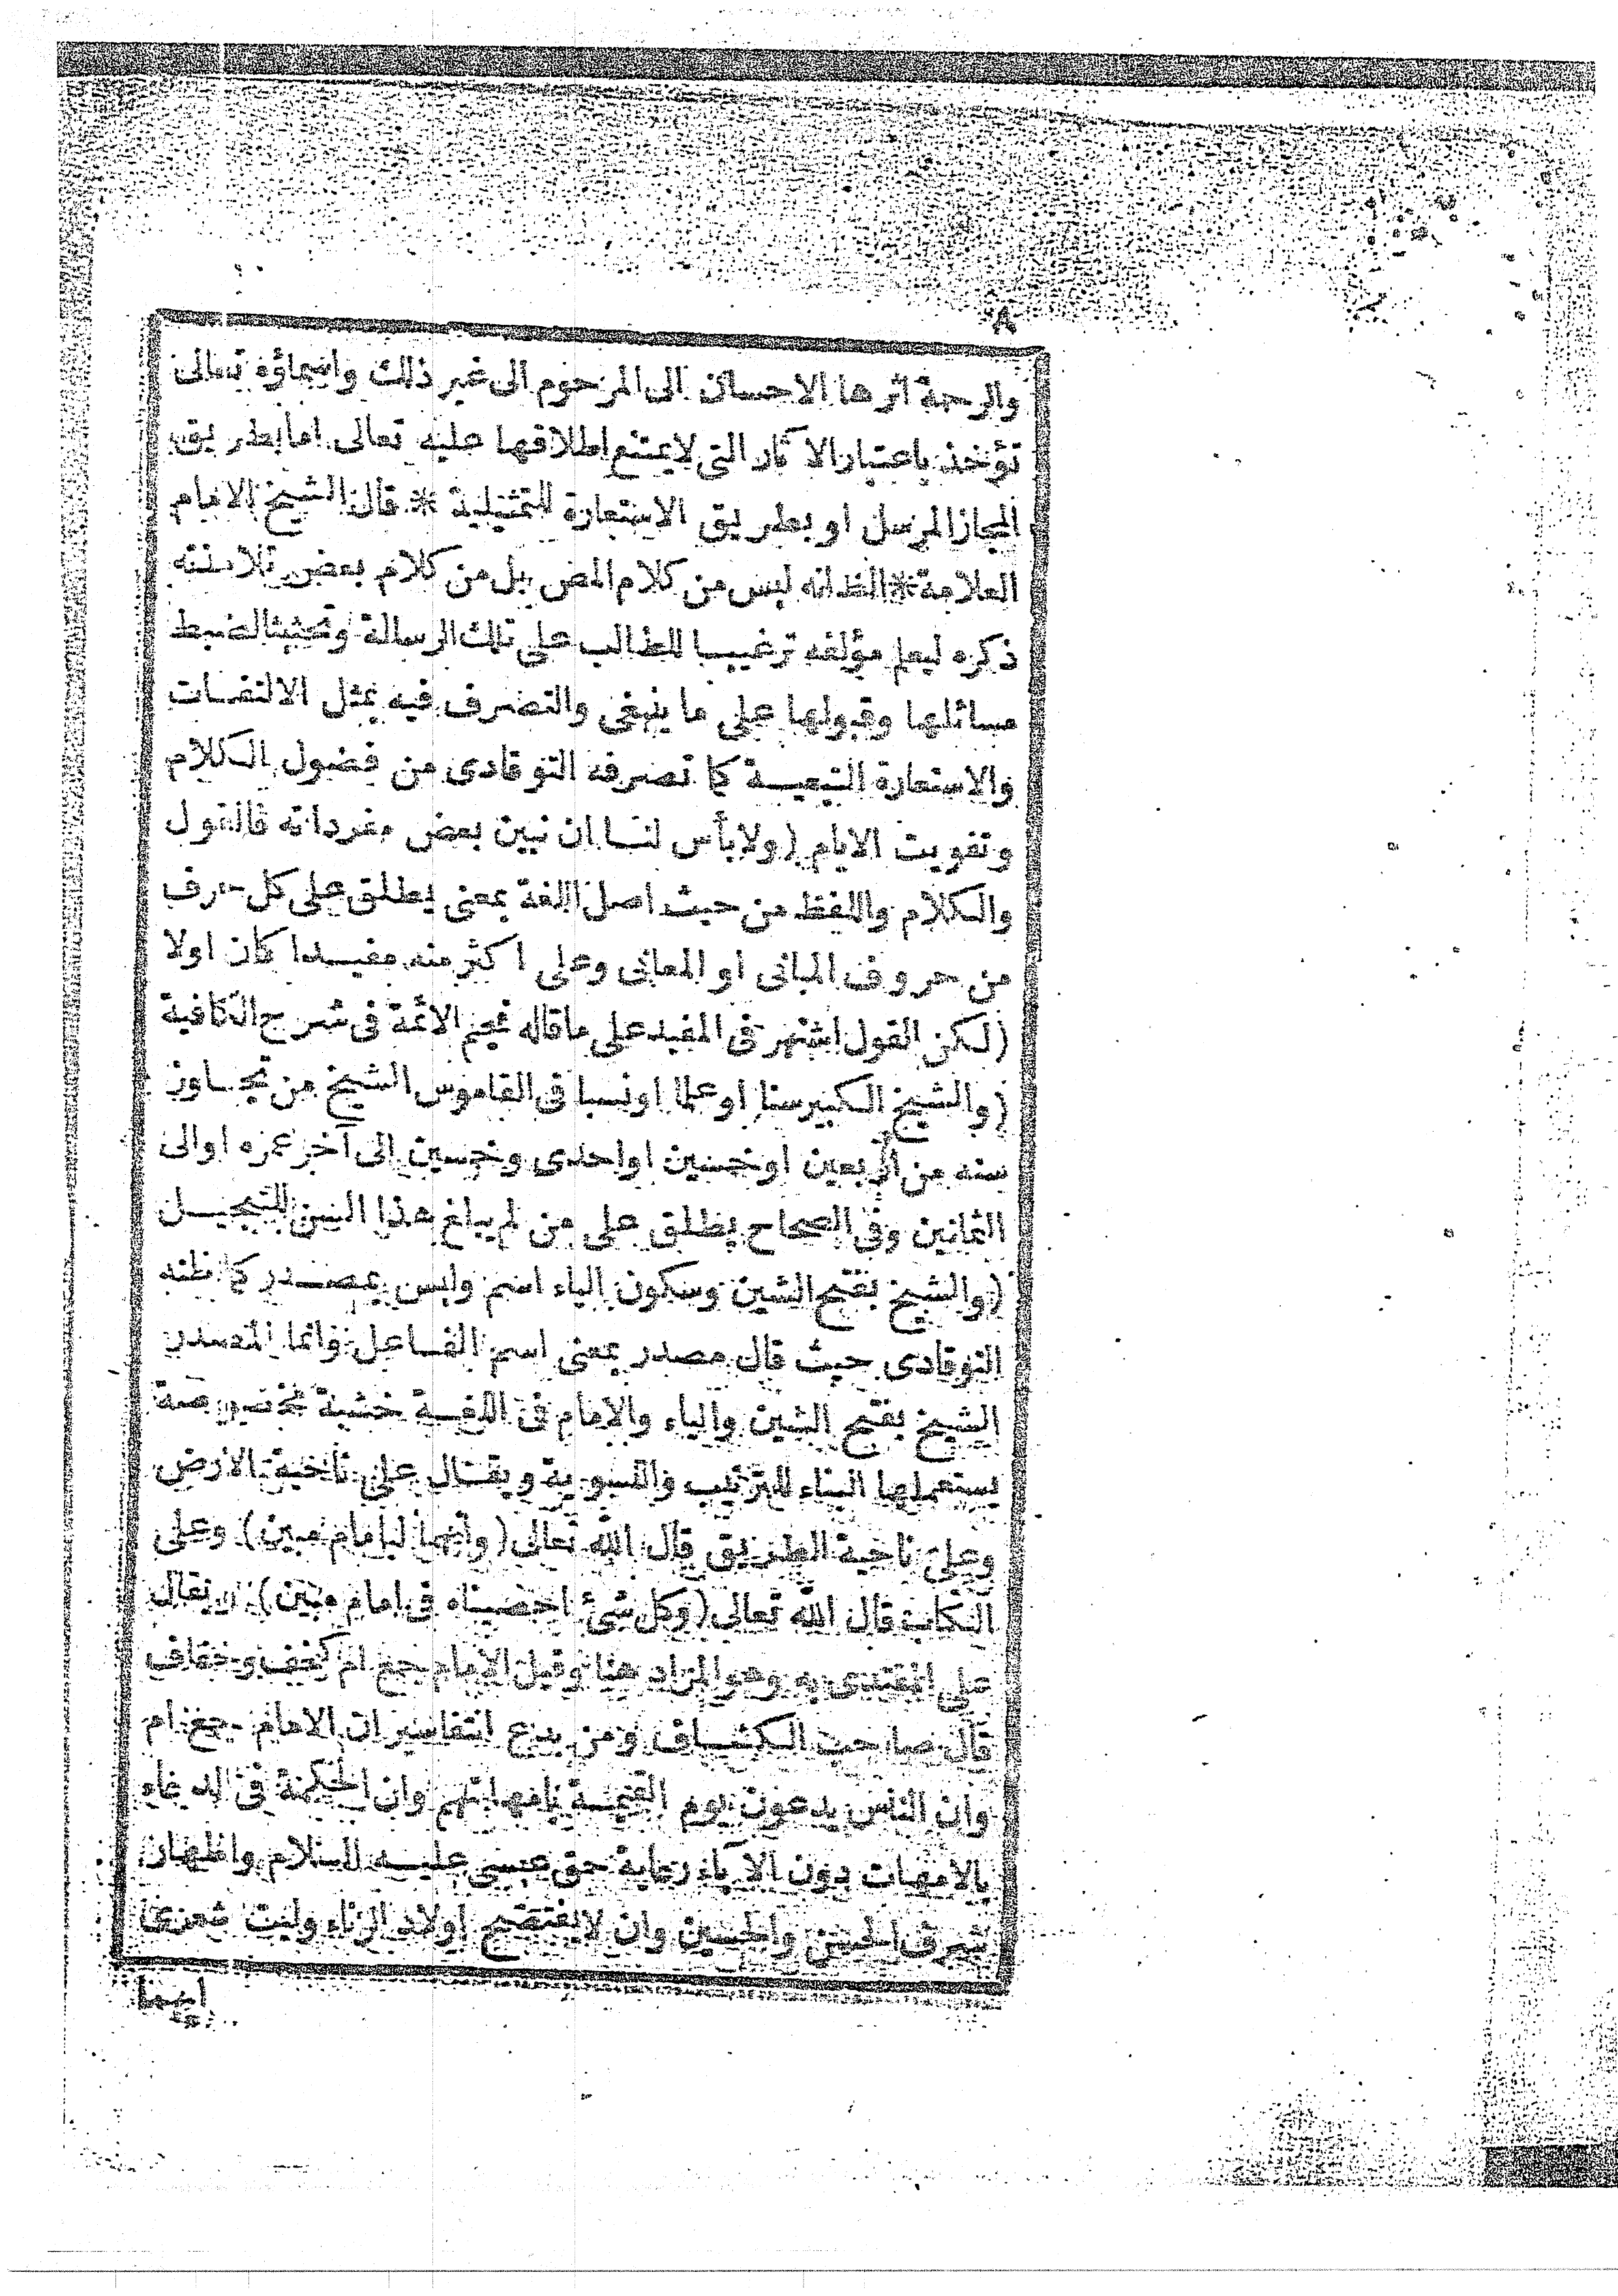 ٨
والرحمة اثرها الاحسان الى المرحوم الى غير ذلك واسماؤه تعالى
تؤخذ باعتبار الآثار التى لايمتنع اطلاقها عليه تعالى اما بطريق
المجاز المرسل او بطريق الاستعارة التمثيلية * قال الشيخ الامام
العلامة * الظ انه ليس من كلام المص بل من كلام بعض تلامذته
ذكره ليعلم مؤلفه ترغيبا للطالب على تلك الرسالة وتحثيثا لضبط
مسائلها وقبولها على ما ينبغى والتصرف فيه بمثل الالتفات
والاستعارة التبعية كما تصرفه التوقادى من فضول الكلام
وتفويت الايام (ولا بأس لنا ان نبين بعض مفرداته فالقول
والكلام واللفظ من حيث اصل اللغة بمعنى يطلق على كل حرف
من حروف المبانى او المعانى وعلى اكثر منه مفيدا كان اولا
(لكن القول اشتهر فى المفيد على ماقاله نجم الائمة فى شرح الكافية
(والشيخ الكبير سنا او علما او نسبا فى القاموس الشيخ من تجاوز
سنه من اربعين او خمسين او احدى وخمسين الى آخر عمره او الى
الثمانين وفى الصحاح يطلق على من لم يبلغ هذا السن للتبجيل
(والشيخ بفتح الشين وسكون الياء اسم وليس بمصدر كما ظنه
التوقادى حيث قال مصدر بمعنى اسم الفاعل وانما المصدر
الشيخ بفتح الشين والياء والامام فى اللغة خشبة مخصوصة
يستعملها البناء للترتيب والتسوية ويقال على ناحية الارض
وعلى ناحية الطريق قال الله تعالى (وانهما لبامام مبين) وعلى
الكتاب قال الله تعالى (وكل شئ احصيناه فى امام مبين) ويقال
على المقتدى به وهو المراد هنا وقيل الامام جمع ام كخف وخفاف
قال صاحب الكشاف ومن بدع التفاسير ان الامام جمع ام
وان الناس يدعون يوم القيمة بامهاتهم وان الحكمة فى الدعاء
بالامهات دون الآباء رعاية حق عيسى عليه السلام واظهار
شرف الحسن والحسين وان لايفتضح اولاد الزناء وليت شعرى
ايهما